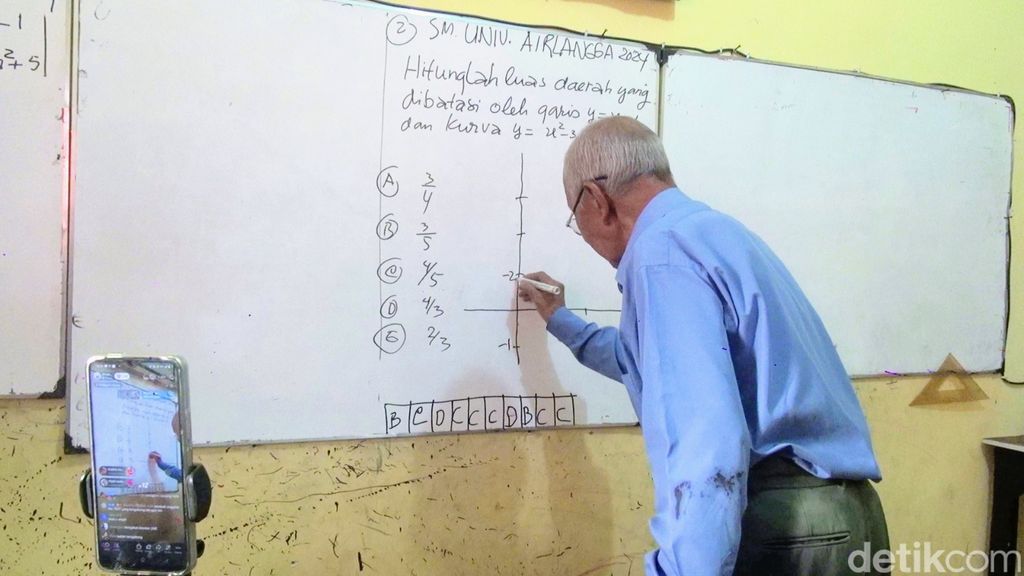 - 1
2 + 5
② SM. UNIV. AIRLANGGA 2024
Hitunglah luas daerah yang
dibatasi oleh garis y =
dan Kurva y = x² - 3
Ⓐ 3/4
Ⓑ 3/5
Ⓒ 4/5
Ⓓ 4/3
Ⓔ 2/3
-2
-1
B C D C C C D B C C
detikcom